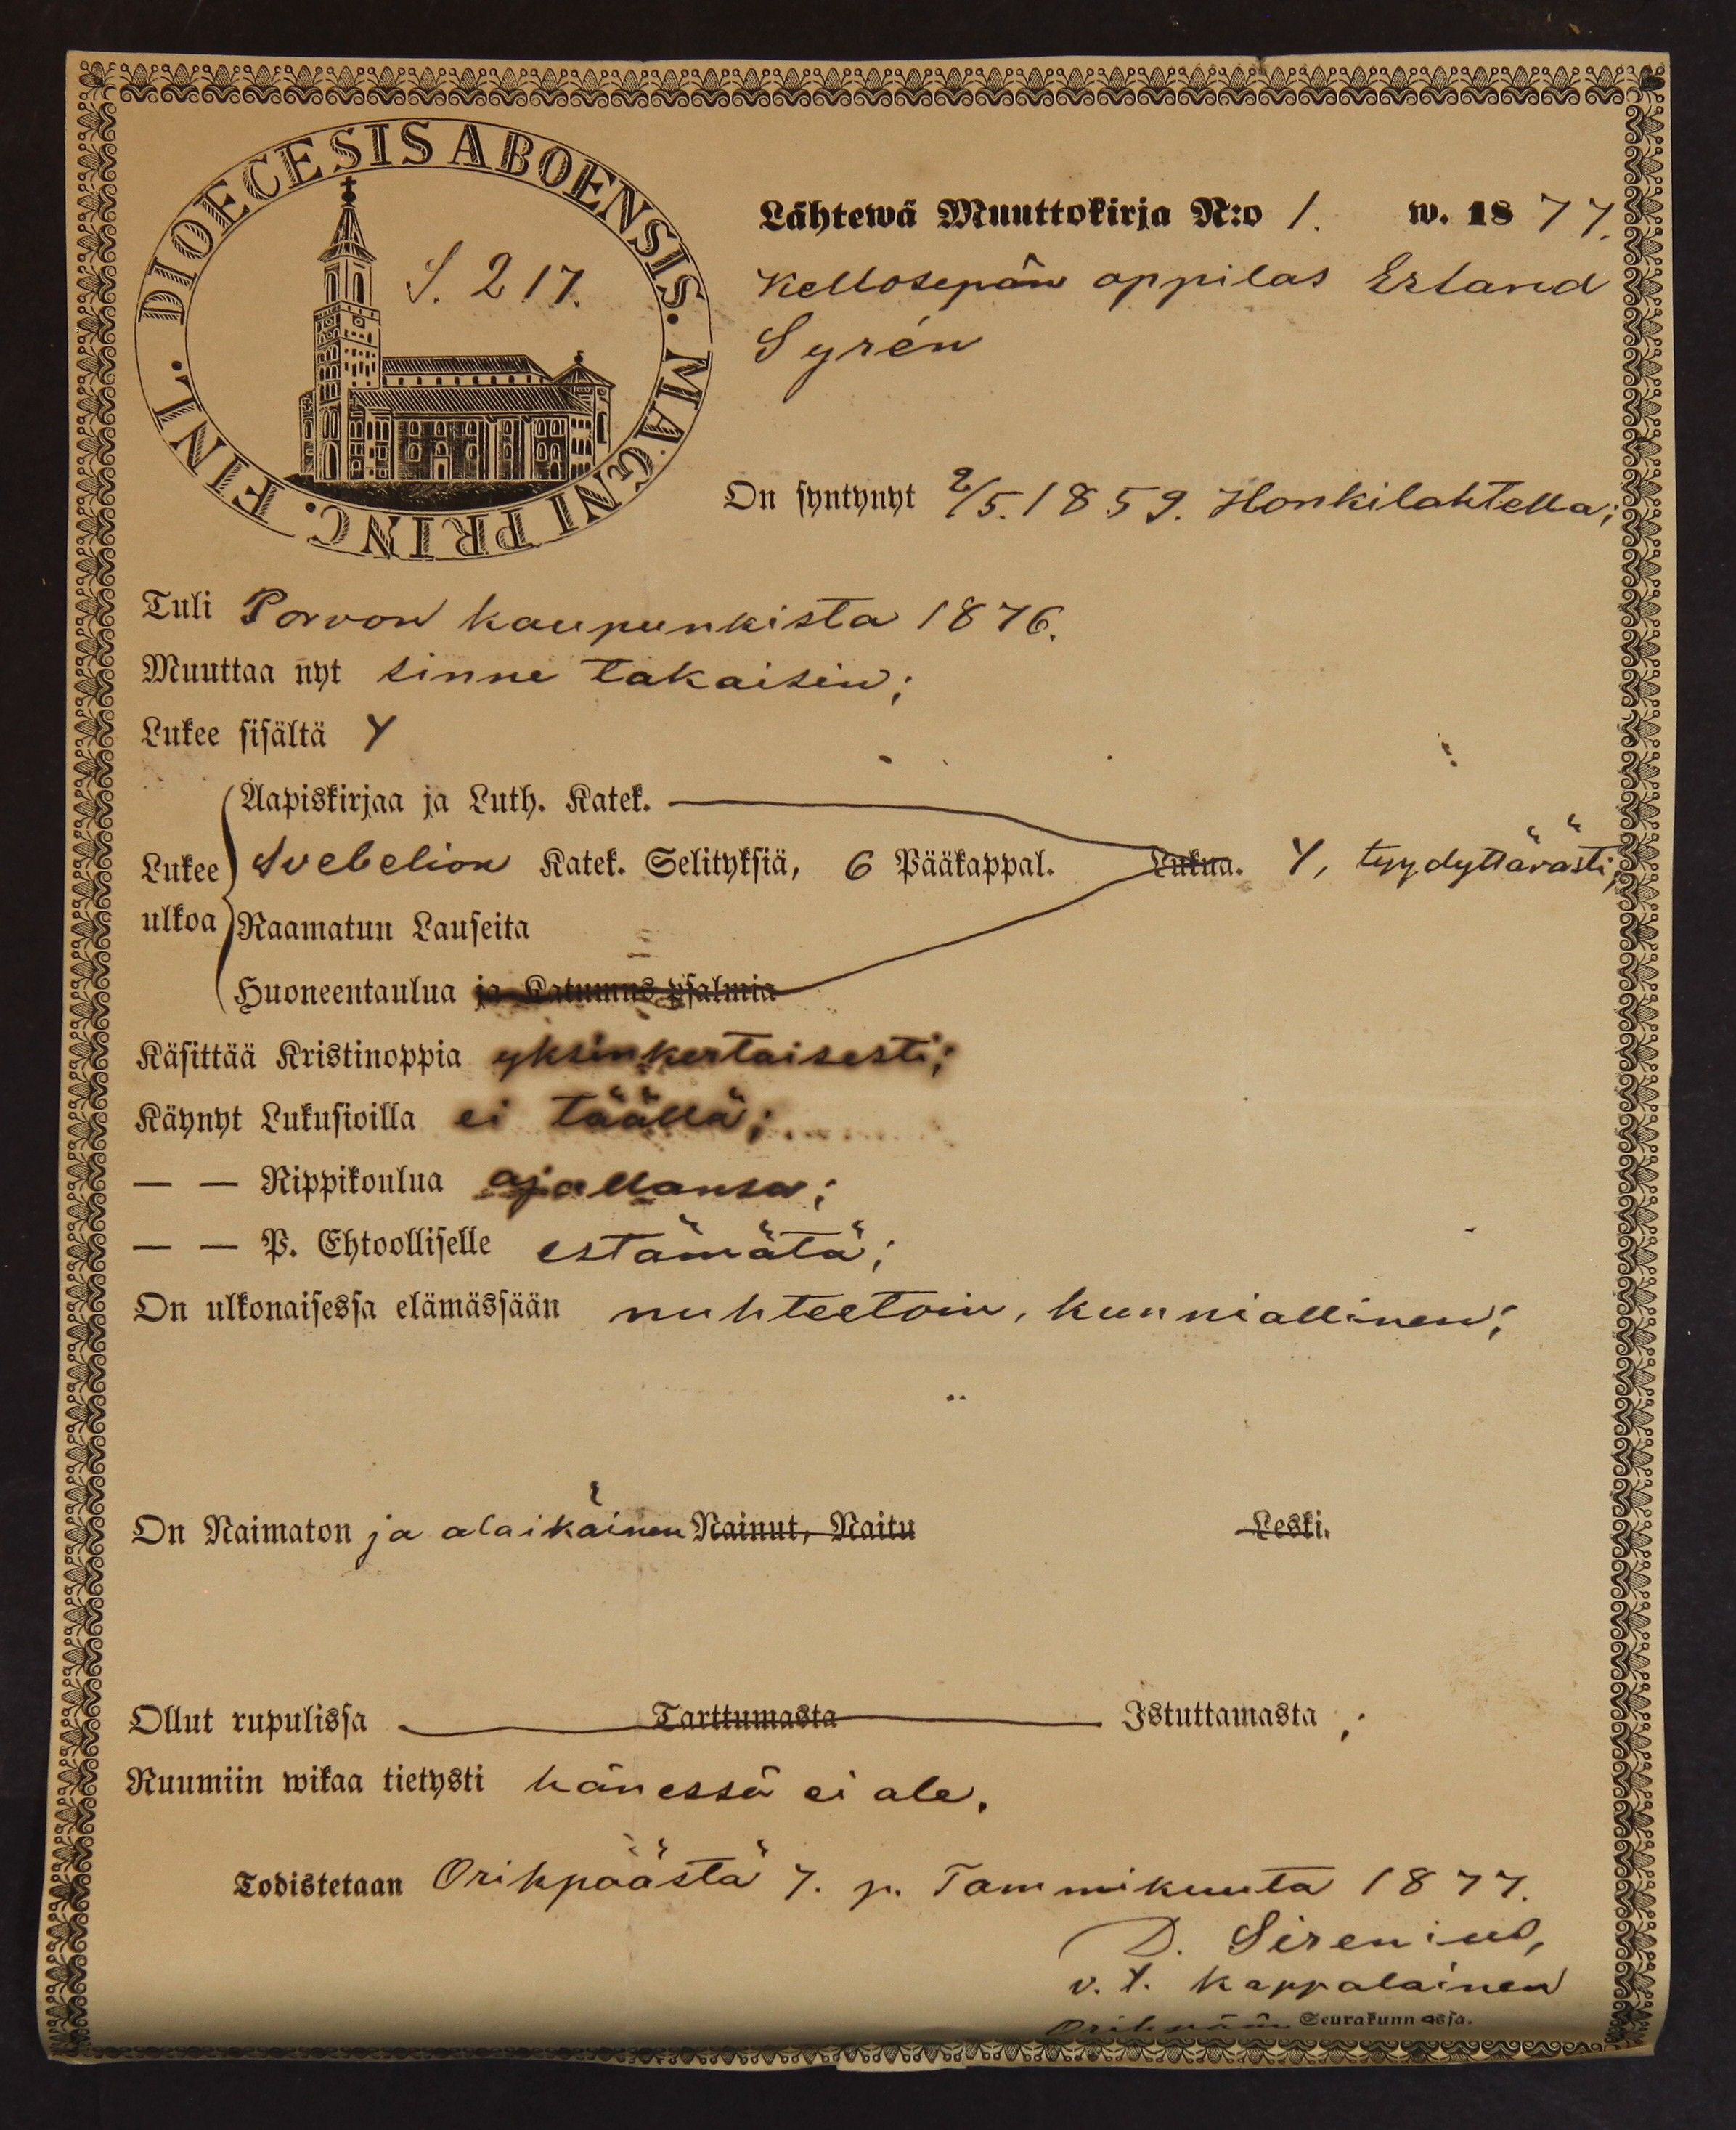 DIOECESIS ABOENSIS. MAGNI PRINC. FINL.
S. 217.
Lähtewä Muuttokirja N:o 1. w. 1877.
Kellosepän oppilas Erland
Syrén
On syntynyt 2/5. 1859. Honkilahtella;
Tuli Porvon kaupunkista 1876.
Muuttaa nyt sinne takaisin;
Lukee sisältä Y
Aapiskirjaa ja Luth. Katek.
Lukee ulkoa Svebelion Katek. Selityksiä, 6 Pääkappal. Lukua. Y, tyydyttävästi;
Raamatun Lauseita
Huoneentaulua ja Katumus psalmia
Käsittää Kristinoppia yksinkertaisesti;
Käynyt Lukusioilla ei täällä;
— — Rippikoulua ajallansa;
— — P. Ehtoolliselle estämätä;
On ulkonaisessa elämässään nuhteetoin, kunniallinen;
On Naimaton ja alaikäinen Nainut, Naitu Leski.
Ollut rupulissa Tarttumasta Istuttamasta ;
Ruumiin wikaa tietysti hänessä ei ole.
Todistetaan Orihpäästä 7. p. Tammikuuta 1877.
D. Sirenius,
v. t. Kappalainen
Orihpään Seurakunnassa.